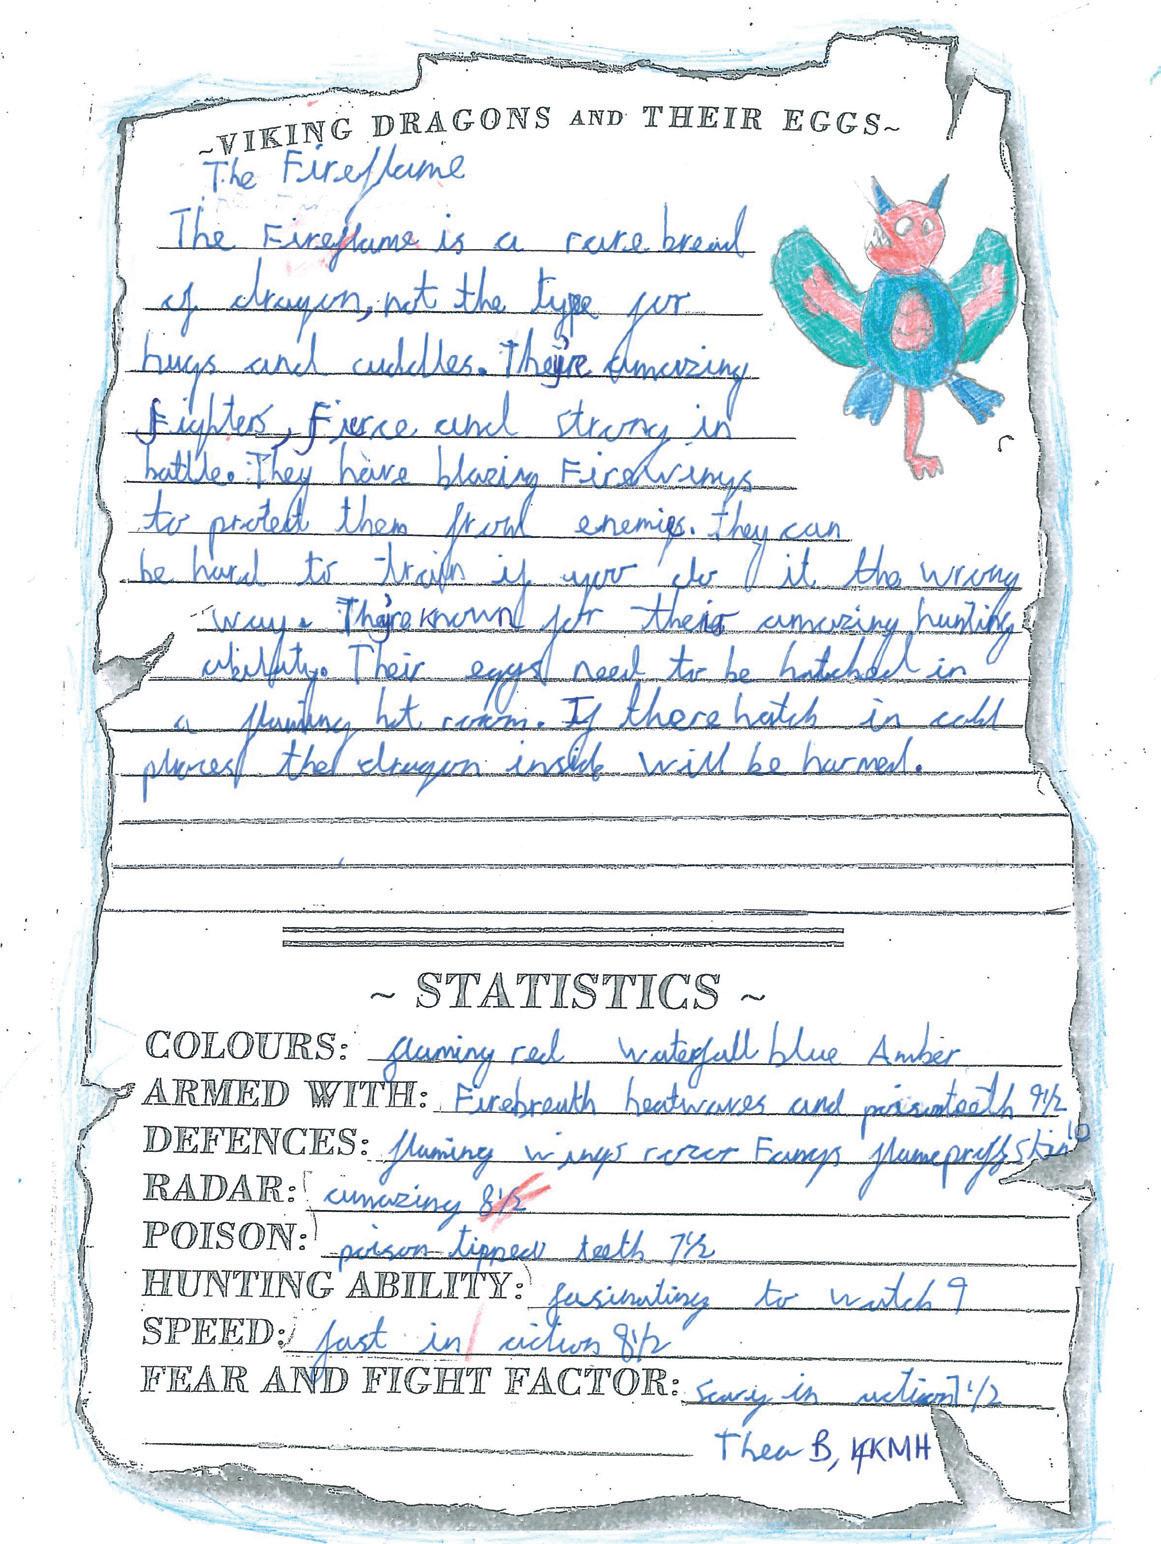 ~VIKING DRAGONS AND THEIR EGGS~
The Fireflame
The Fireflame is a rare bread
of dragon, not the type for
hugs and cuddles. They're amazing
Fighters, Fierce and strong in
battle. They have blazing Firewings
to protect them from enemies. They can
be hard to train if you do it the wrong
way. They're known for their amazing hunting
ability. Their eggs need to be hatched in
a flaming hot room. If there hatch in cold
places the dragon inside will be harmed.
~ STATISTICS ~
COLOURS: flaming red waterfall blue Amber
ARMED WITH: Firebreath heatwaves and poisonteeth 9½
DEFENCES: flaming wings razor Fangs flameproff skin 10
RADAR: amazing 8½
POISON: poison-tipped teeth 7½
HUNTING ABILITY: fasinating to watch 9
SPEED: fast in action 8½
FEAR AND FIGHT FACTOR: scary in action 7½
Thea B, 4KMH